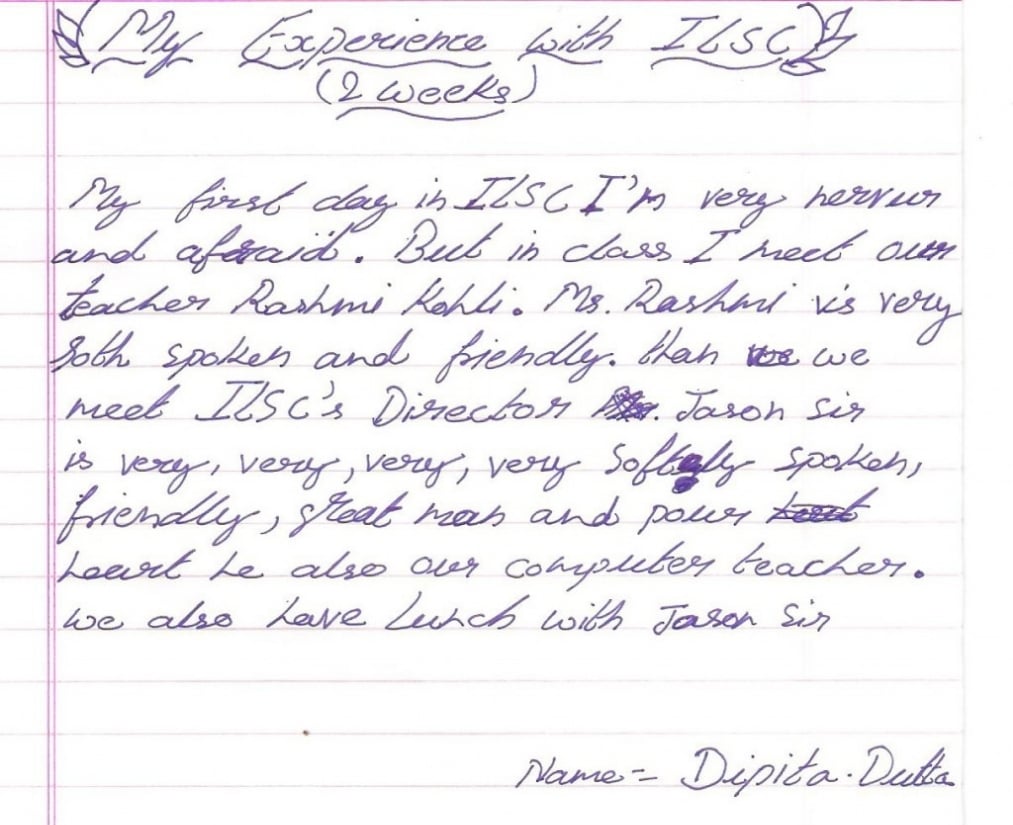 My Experience with ILSC
(2 weeks)
My first day in ILSC I'm very nervur
and afraid. But in class I meet our
teacher Rashmi Kohli. Ms. Rashmi is very
soth spoken and friendly. than we
meet ILSC's Director Jason sir
is very, very, very, very softly spoken,
friendly, great man and pour
heart he also our computer teacher.
we also have Lunch with Jason sir
Name= Dipita. Dutta